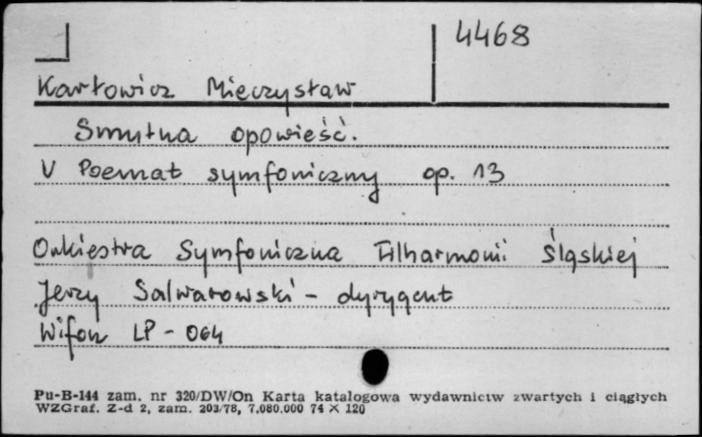 4468
Karłowicz Mieczysław
Smutna opowieść.
V Poemat symfoniczny op. 13
Orkiestra Symfoniczna Filharmonii Śląskiej
Jerzy Salwarowski - dyrygent
Wifon LP - 064
Pu-B-144 zam. nr 320/DW/On Karta katalogowa wydawnictw zwartych i ciągłych
WZGraf. Z-d 2, zam. 203/78, 7.080.000 74 × 120